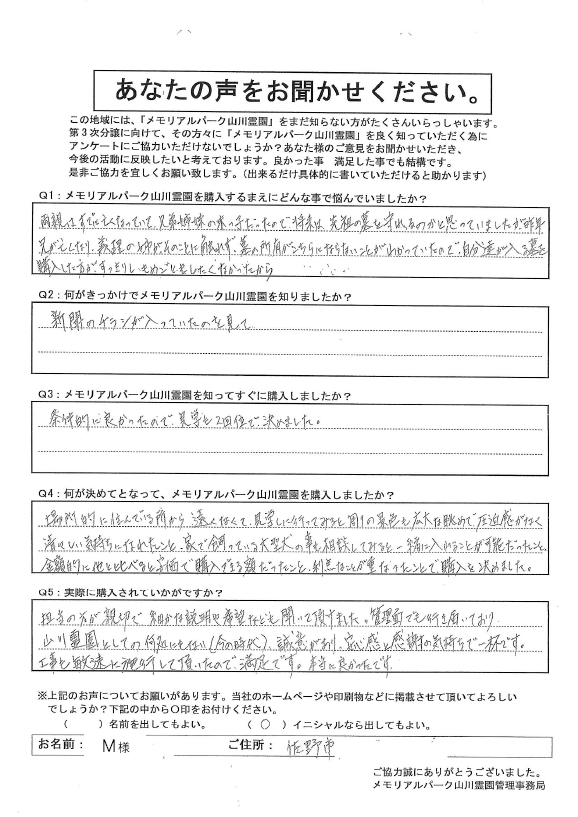 あなたの声をお聞かせください。
この地域には、「メモリアルパーク山川霊園」をまだ知らない方がたくさんいらっしゃいます。
第3次分譲に向けて、その方々に「メモリアルパーク山川霊園」を良く知っていただく為に
アンケートにご協力いただけないでしょうか？あなた様のご意見をお聞かせいただき、
今後の活動に反映したいと考えております。良かった事　満足した事でも結構です。
是非ご協力を宜しくお願い致します。（出来るだけ具体的に書いていただけると助かります）
Q1：メモリアルパーク山川霊園を購入するまえにどんな事で悩んでいましたか？
両親はすでに亡くなっていて、兄弟姉妹の末っ子だったので将来は、先祖の墓を守れるのかと思っていましたが昨年
兄が亡くなり、義理の姉がそのことに触れず、墓の所有がこちらにならないことがわかっていたので、自分達が入る墓を
購入した方がすっきりし、もめごとをしたくなかったから
Q2：何がきっかけでメモリアルパーク山川霊園を知りましたか？
新聞のチラシが入っていたのを見て
Q3：メモリアルパーク山川霊園を知ってすぐに購入しましたか？
条件的に良かったので、見学を2回位で決めました。
Q4：何が決めてとなって、メモリアルパーク山川霊園を購入しましたか？
場所的に住んでいる所から遠くなくて、見学しに行ってみると周りの景色も広大な眺めで圧迫感がなく
清々しい気持ちになれたこと、家で飼っている大型犬の事も相談してみると一緒に入れることが可能だったこと、
金額的に他と比べると安価で購入できる額だったこと、利点なことが重なったことで購入を決めました。
Q5：実際に購入されていかがですか？
担当の方が親切で細かな説明や希望なども聞いて頂けました。管理面でも行き届いており
山川霊園としての何処にもない（今の時代）誠意があり、安心感と感謝の気持ちで一杯です。
工事も敏速に施行して頂いたので満足です。本当に良かったです
※上記のお声についてお願いがあります。当社のホームページや印刷物などに掲載させて頂いてよろしい
でしょうか？下記の中から〇印をお付けください。
（　　）名前を出してもよい。　（ 〇 ）イニシャルなら出してもよい。
お名前：　M様　ご住所：　佐野市
ご協力誠にありがとうございました。
メモリアルパーク山川霊園管理事務局